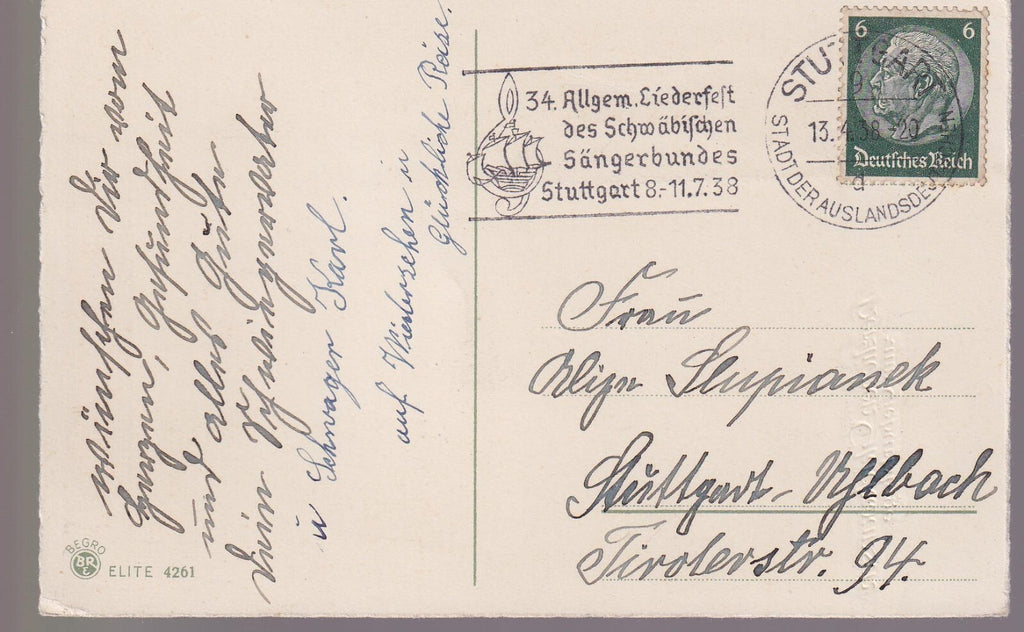 wünschen Dir vom
Herzen, Gesundheit
und alles Gute
Dein Schwiegervater
u Schwager Karl.
auf Wiedersehen u
Glückliche Reise.
34. Allgem. Liederfest
des Schwäbischen
Sängerbundes
Stuttgart 8.-11.7.38
STUTTGART
13.4.38 -20
STADT DER AUSLANDSDEUTSCHEN
6 6
Deutsches Reich
Frau
Slupianek
Stuttgart-Uhlbach
Tirolerstr. 94.
BEGRO
BR
ELITE 4261